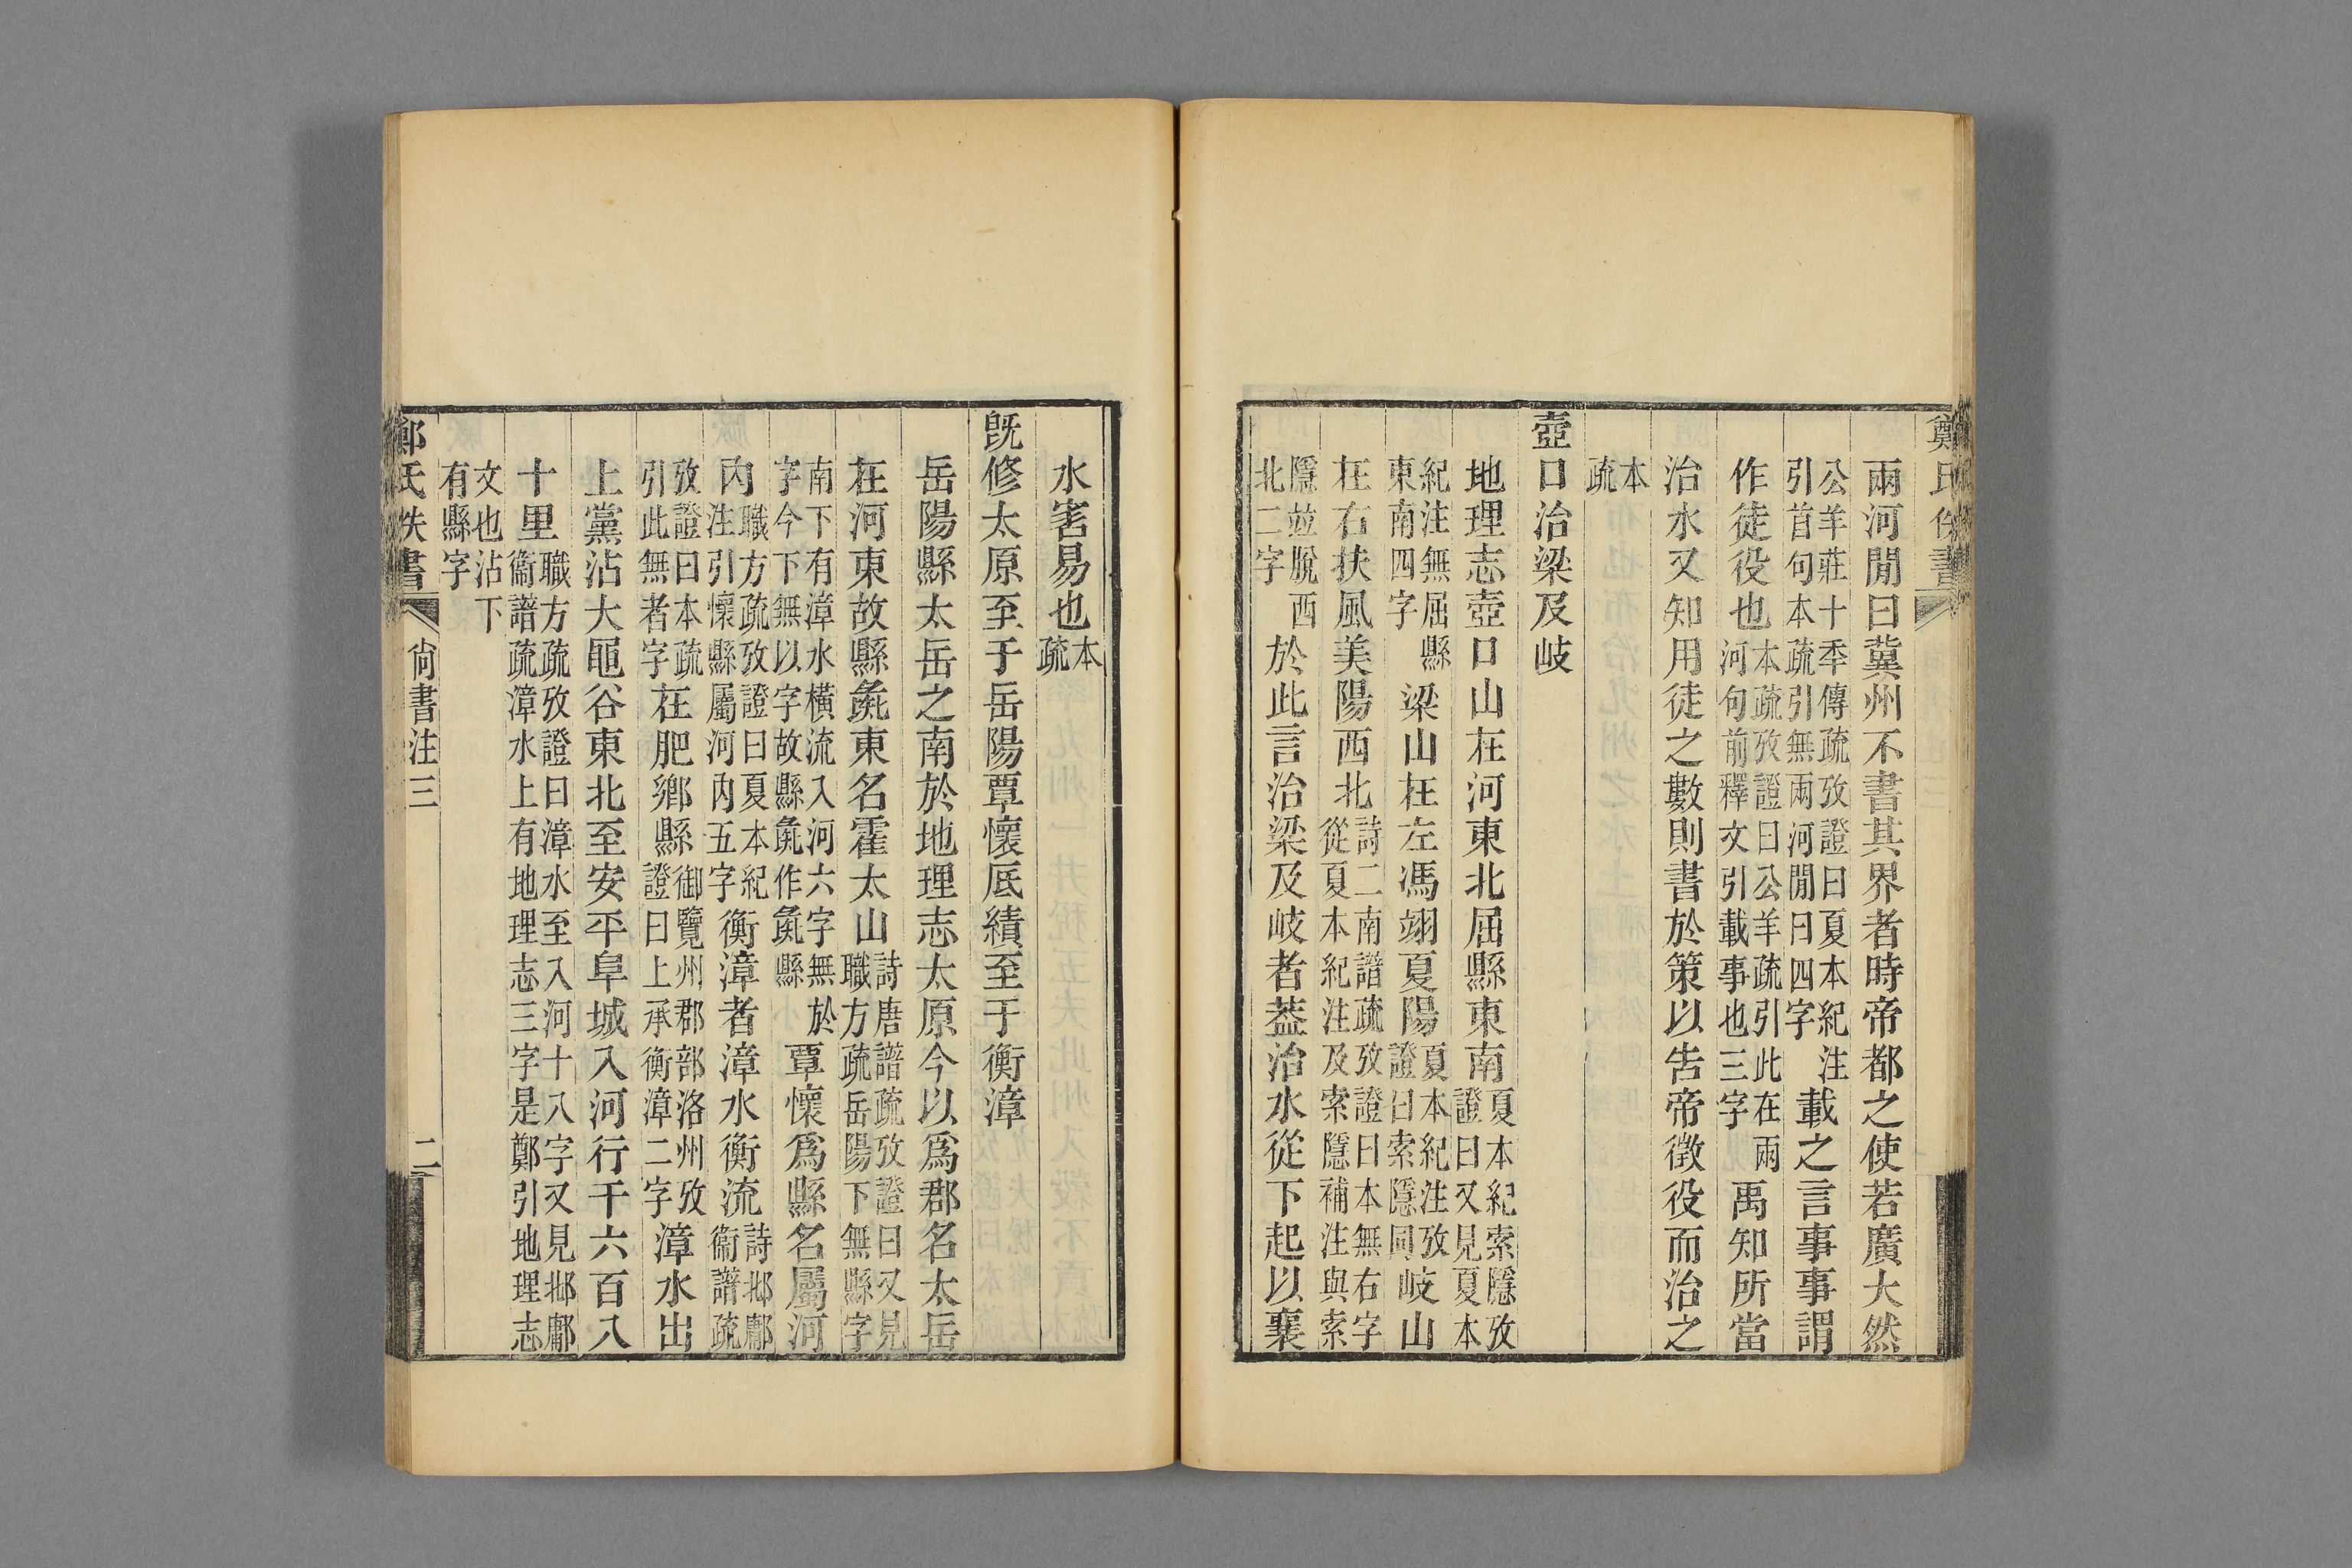 鄭氏佚書
兩河閒曰冀州不書其界者時帝都之使若廣大然
公羊莊十秊傳疏攷證曰夏本紀注
引首句本疏引無兩河閒曰四字
載之言事事謂
作徒役也
本疏攷證曰公羊疏引此在兩
河句前釋文引載事也三字
禹知所當
治水又知用徒之數則書於策以告帝徵役而治之
本
疏
壺口治梁及岐
地理志壺口山在河東北屈縣東南
夏本紀索隱攷
證曰又見夏本
紀注無屈縣
東南四字
梁山在左馮翊夏陽
夏本紀注攷
證曰索隱同
岐山
在右扶風美陽西北
詩二南譜疏攷證曰本無右字
從夏本紀注及索隱補注與索
隱竝脫西
北二字
於此言治梁及岐者葢治水從下起以襄
水害易也
本
疏
旣修太原至于岳陽覃懷厎績至于衡漳
岳陽縣太岳之南於地理志太原今以爲郡名太岳
在河東故縣彘東名霍太山
詩唐譜疏攷證曰又見
職方疏岳陽下無縣字
南下有漳水橫流入河六字無於
字今下無以字故縣彘作彘縣
覃懷爲縣名屬河
內
職方疏攷證曰夏本紀
注引懷縣屬河內五字
衡漳者漳水衡流
詩邶鄘
衞譜疏
攷證曰本疏
引此無者字
在肥鄉縣
御覽州郡部洛州攷
證曰上承衡漳二字
漳水出
上黨沾大黽谷東北至安平阜城入河行千六百八
十里
職方疏攷證曰漳水至入河十八字又見邶鄘
衞譜疏漳水上有地理志三字是鄭引地理志
文也沾下
有縣字
鄭氏佚書
尙書注三
二